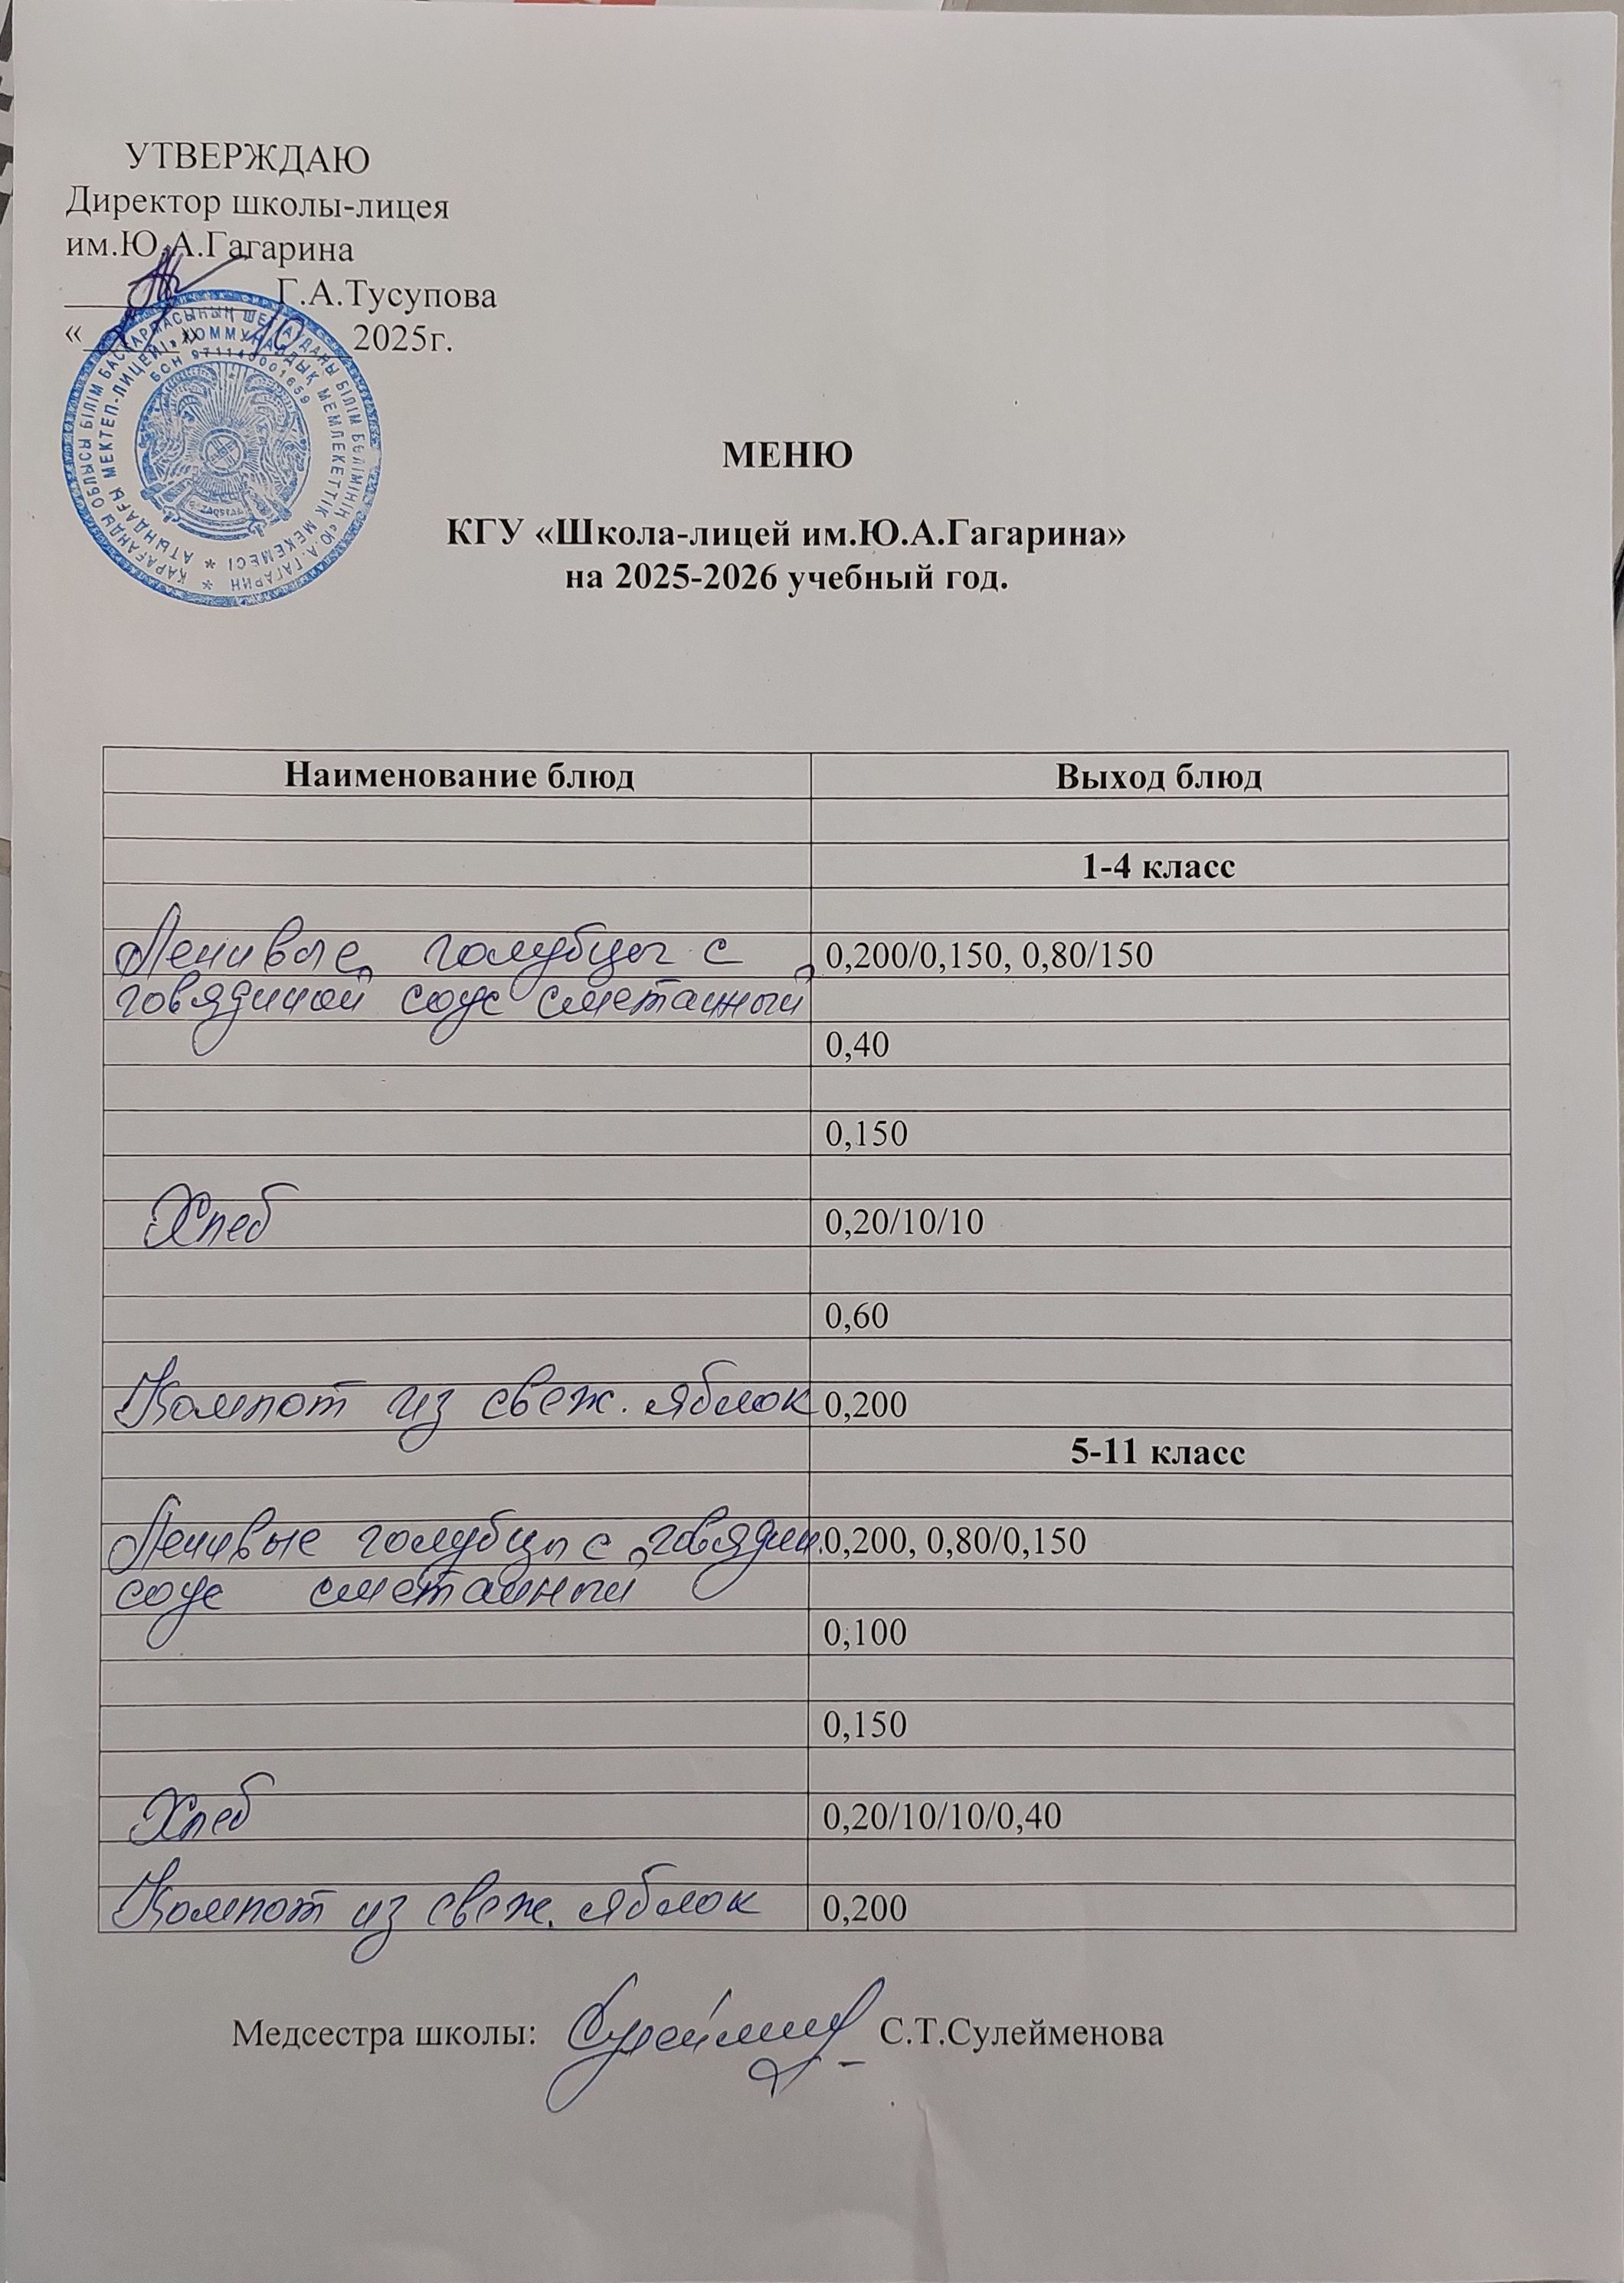 УТВЕРЖДАЮ
Директор школы-лицея
им.Ю.А.Гагарина
Г.А.Тусупова
« » 10 2025г.
ҚАРАҒАНДЫ ОБЛЫСЫ БІЛІМ БАСҚАРМАСЫНЫҢ ШЕТ АУДАНЫ БІЛІМ БӨЛІМІНІҢ «Ю.А. ГАГАРИН
АТЫНДАҒЫ МЕКТЕП-ЛИЦЕЙІ» КОММУНАЛДЫҚ МЕМЛЕКЕТТІК МЕКЕМЕСІ
БСН 971140001659
МЕНЮ
КГУ «Школа-лицей им.Ю.А.Гагарина»
на 2025-2026 учебный год.
Наименование блюд Выход блюд
1-4 класс
Ленивые голубцы с 0,200/0,150, 0,80/150
говядиной соус сметанный
0,40
0,150
Хлеб 0,20/10/10
0,60
Компот из свеж. яблок 0,200
5-11 класс
Ленивые голубцы с говядин. 0,200, 0,80/0,150
соус сметанный
0,100
0,150
Хлеб 0,20/10/10/0,40
Компот из свеж. яблок 0,200
Медсестра школы: С.Т.Сулейменова